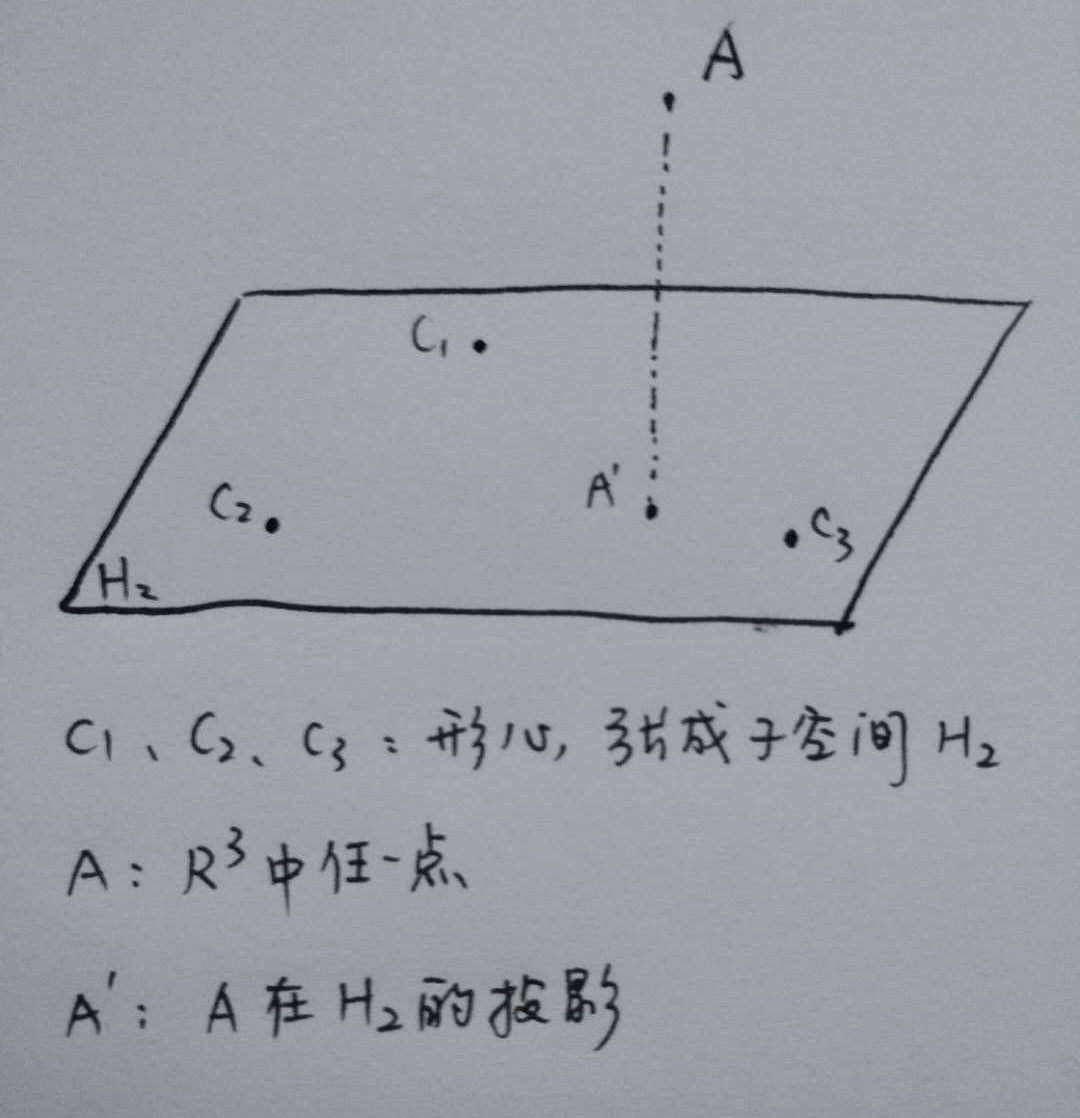 A
C₁
A'
C₂
C₃
H₂
C₁、C₂、C₃：形心，张成子空间 H₂
A：R³中任一点
A'：A 在 H₂ 的投影